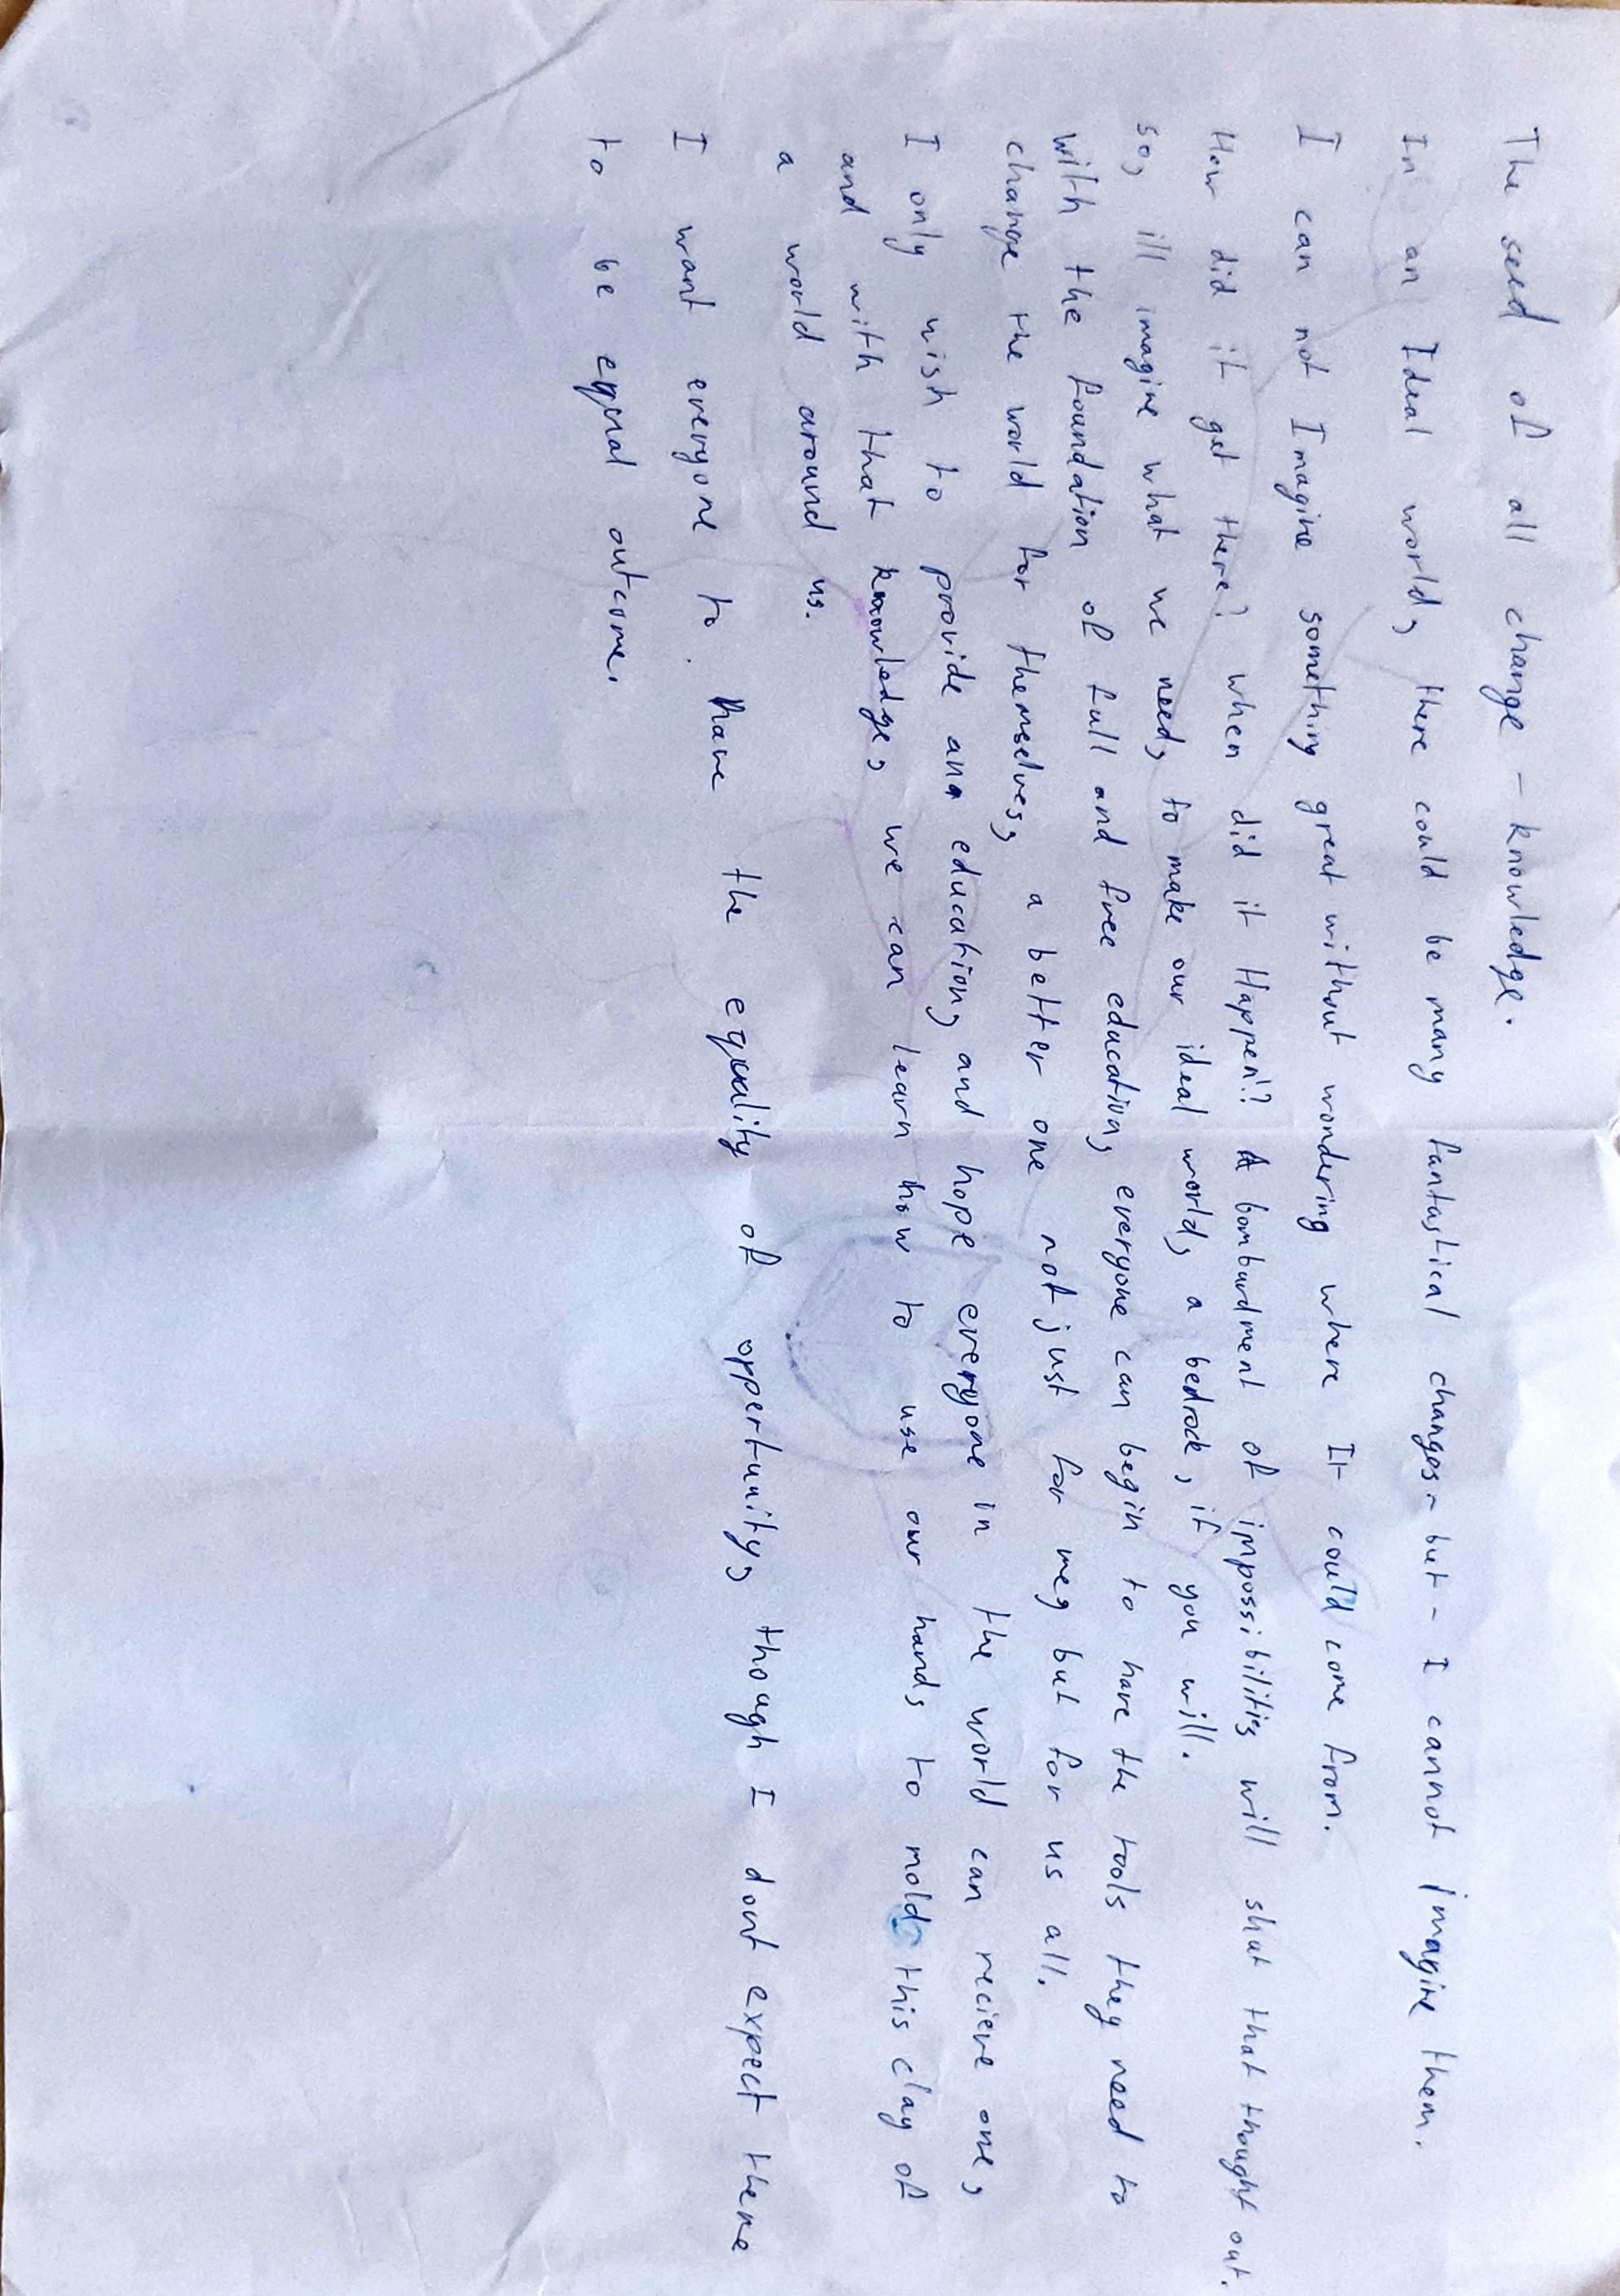 The seed of all change - knowledge.
In an Ideal world, there could be many fantastical changes - but - I cannot imagine them.
I can not Imagine something great without wondering where It could come from.
How did it get there? when did it Happen!? A bombardment of impossibilities will shut that thought out.
so, ill imagine what we need, to make our ideal world, a bedrock, if you will.
with the foundation of full and free education, everyone can begin to have the tools they need to
change the world for themselves, a better one not just for me, but for us all.
I only wish to provide an education, and hope everyone in the world can recieve one,
and with that knowledge, we can learn how to use our hands to mold this clay of
a world around us.
I want everyone to have the equality of oppertunity, though I dont expect there
to be equal outcome.